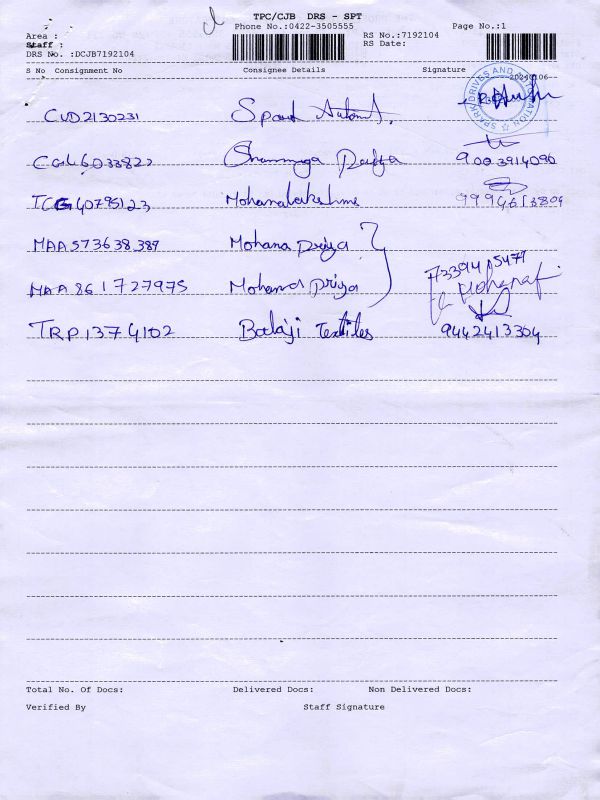 TPC/CJB DRS - SPT
Phone No.:0422-3505555 Page No.:1
Area :
Staff :
DRS No. :DCJB7192104
RS No.:7192104
RS Date:
S No Consignment No Consignee Details Signature
SPARK DRIVES AND AUTOMATION
CUD2130231 Spark
6033822 Shanmuga 9003914090
TCG40795123 Mohanalakshme
MAA573638389 Mohana Priya
MAA861727975 Mohana Priya
TRP1374102 Balaji Textiles 9442413304
Total No. Of Docs: Delivered Docs: Non Delivered Docs:
Verified By Staff Signature